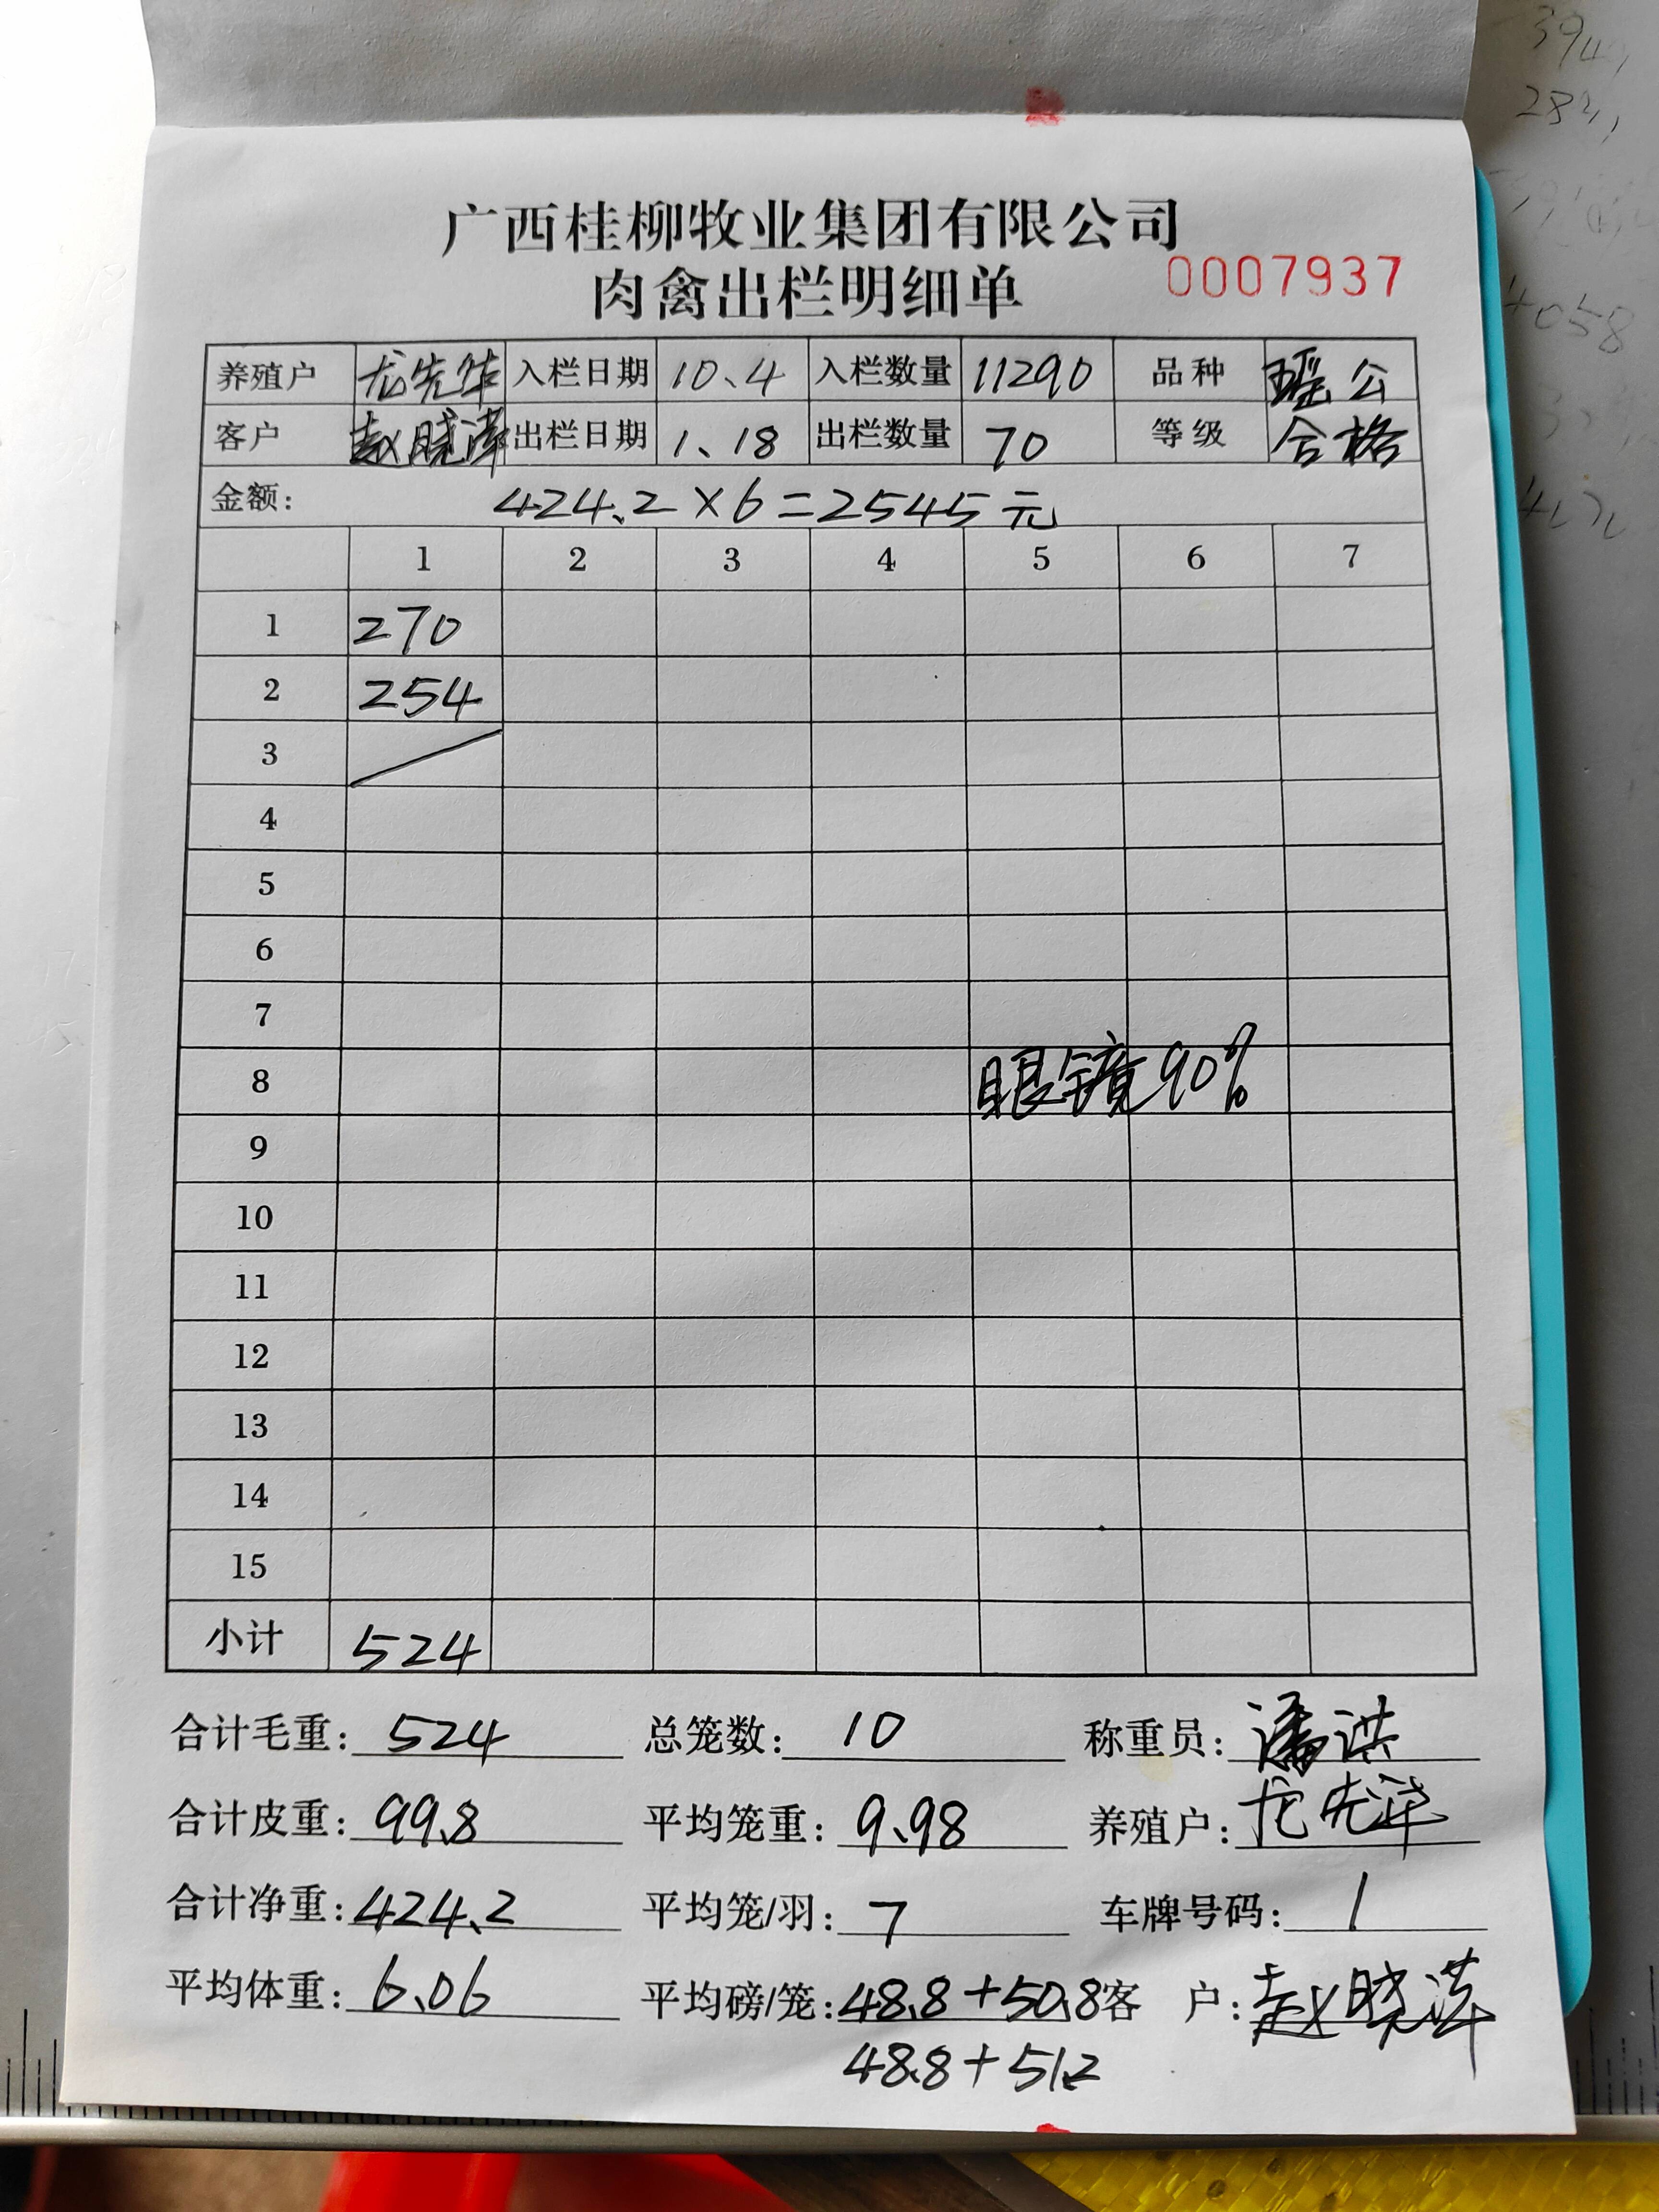 广西桂柳牧业集团有限公司
肉禽出栏明细单 0007937
养殖户 龙先华 入栏日期 10.4 入栏数量 11290 品种 瑶公
客户 赵晓萍 出栏日期 1.18 出栏数量 70 等级 合格
金额: 424.2×6=2545元
1 2 3 4 5 6 7
1 270
2 254
3
4
5
6
7
8 眼镜90%
9
10
11
12
13
14
15
小计 524
合计毛重: 524 总笼数: 10 称重员: 潘洪
合计皮重: 99.8 平均笼重: 9.98 养殖户: 龙先华
合计净重: 424.2 平均笼/羽: 7 车牌号码: 1
平均体重: 6.06 平均磅/笼: 48.8+50.8 客户: 赵晓萍
48.8+51.2
4058